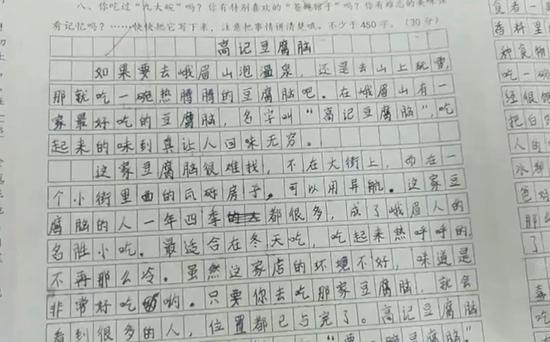 八、你吃过“九大碗”吗？你有特别喜欢的“苍蝇馆子”吗？你有难忘的美味佳
有记忆吗？……快快把它写下来，注意把事情讲清楚哦。不少于450字。（30分）
高记豆腐脑
如果要去峨眉山泡温泉，还是去山上玩雪，
那就吃一碗热腾腾的豆腐脑吧。在峨眉山有一
家最好吃的豆腐脑，名字叫“高记豆腐脑”，吃
起来的味到真让人回味无穷。
这家豆腐脑很难找，不在大街上，而在一
个小街里面的瓦砖房子。可以用导航。这家豆
腐脑的人一年四季都很多，成了峨眉人的
名胜小吃。最适合在冬天吃，吃起来热呼呼的，
不再那么冷。虽然这家店的环境不好，味道是
非常好吃的哟。只要你去吃那家豆腐脑，就会
看到很多的人，位置都已与完了。高记豆腐脑
食者一
香料里
种食物
吃一碗
经很饱
把白
人
水梨
色
那